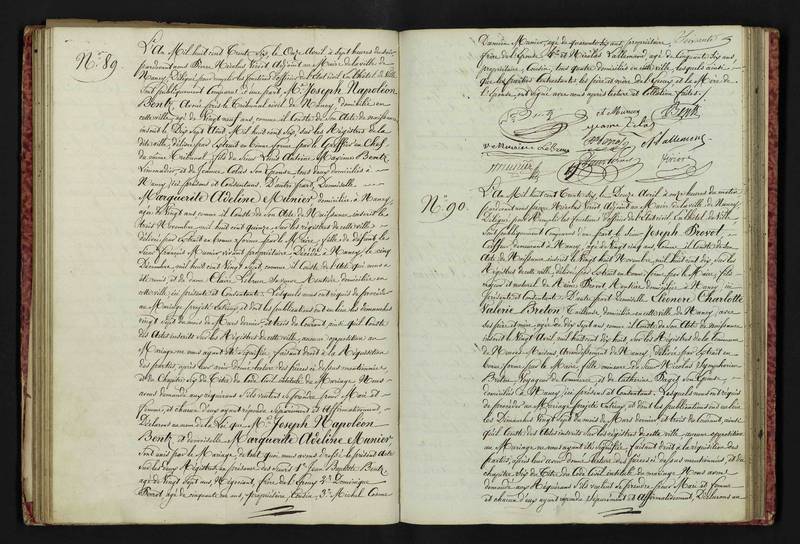 N.° 89.
L'An Mil huit cent Trente Six, le Onze Avril à Sept heures du soir,
pardevant nous Pierre Nicolas Voirot Adjoint au Maire de la ville de
Nancy, Délégué pour remplir les fonctions d'officier de l'état civil En l'hôtel de Ville
Sont publiquement Comparus d'une part M.r Joseph Napoléon
Bentz Avoué près le Tribunal Civil de Nancy, domicilié en
cette ville, agé de Vingt neuf ans, comme il Conste de Son Acte de naissance
inscrit le Sept Août Mil huit cent Six, sur les Registres de la
dite ville, délivré par Extrait en bonne forme par le Greffier en Chef
du même Tribunal fils de Sieur Louis Antoine Maxime Bentz
Limonadier, et de Jeanne Colas Son Epouse, tous deux domiciliés à
Nancy, ici présents et Consentants. D'autre part, Demoiselle
Marguerite Adeline Munier, domiciliée à Nancy,
agée de Vingt ans comme il Conste de Son Acte de Naissance inscrit le
trois Novembre, mil huit cent quinze, sur les registres de cette ville
délivré par Extrait en bonne forme par le Maire, fille de défunt le
Sieur François Munier vivant propriétaire Décédé à Nancy, le cinq
Décembre, mil huit cent Vingt Sept, comme il Conste de l'Acte qui nous a
été remis, et de Dame Claire Lebrun Sa veuve Rentière domiciliée en
cette ville, ici présente et Consentante. Lesquels nous ont requis de procéder
au Mariage projeté Entr'eux, et dont les publications ont eu lieu les Dimanches
vingt Sept du mois de Mars dernier, et trois du Courant, ainsi qu'il Conste
des Actes inscrits Sur les Registres de cette ville, aucune opposition au
Mariage ne nous ayant été Signifiée, faisant droit à la Réquisition
des parties, après leur avoir donné lecture des pièces ci dessus mentionnées,
et du Chapitre Six du Titre du Code Civil intitulé du Mariage Nous
avons demandé aux requérants S'ils veulent Se prendre pour Mari et
femme, et chacun d'eux ayant répondu Séparément et affirmativement,
Déclarons au nom de la Loi que M.r Joseph Napoléon
Bentz et demoiselle Marguerite Adeline Munier
Sont unis par le Mariage, de tout quoi nous avons dressé le présent Acte
Sur les deux Registres en présence des Sieurs 1.° Jean Baptiste Bentz,
agé de Vingt Sept ans, Négociant, frère de l'Epoux 2.° Dominique
agé de cinquante un ans, propriétaire, Cousin 3.° Michel Come
Damien Munier, agé de quarante Six ans, propriétaire,
frère de l'Epouse 4.° et Nicolas Vallemont, agé de Cinquante Six ans,
propriétaire, Cousin, tous quatre domiciliés en cette ville, lesquels ainsi
que les parties Contractantes les père et mère de l'Epoux et la Mère de
l'Epouse, ont signé avec nous après lecture et Collation faites./.
A Munier
Jeanne Colas
Lebrun
Vallemont
Voirot
N.° 90.
L'An Mil huit cent Trente Six, le Douze Avril à onze heures du matin
pardevant nous Pierre Nicolas Voirot Adjoint au Maire de la ville de Nancy,
Délégué pour Remplir les fonctions d'officier de l'état civil, En l'hôtel de Ville
Sont publiquement Comparus d'une part le Sieur Joseph Prevot,
Coiffeur demeurant à Nancy, agé de Vingt cinq ans, Comme il Conste de son
Acte de Naissance inscrit le Vingt huit Novembre, mil huit cent dix, Sur les
Registres de cette ville, délivré par Extrait en bonne forme par le Maire, fils
majeur et naturel de Marie Prevot Rentière domiciliée à Nancy, ici
présente et Consentante. D'autre part Demoiselle Eléonore Charlotte
Valerie Breton Tailleuse domiciliée en cette ville de Nancy, avec
Ses père et mère, agée de dix Sept ans, comme il Conste de Son Acte de naissance
inscrit le Vingt Avril mil huit cent dix huit, Sur les Registres de la Commune
de Arrondissement de Nancy, délivré par Extrait en
bonne forme par le Maire, fille mineure de Sieur Nicolas Symphorien
Breton Voyageur de Commerce, et de Catherine Son Epouse,
domiciliés à Nancy, ici présents et Consentants. Lesquels nous ont requis
de procéder au Mariage projeté Entr'eux, et dont les publications ont eu lieu
les Dimanches Vingt Sept du mois de Mars dernier, et trois du Courant, ainsi
qu'il Conste des Actes inscrits Sur les Registres de cette ville, aucune opposition
au Mariage ne nous ayant été Signifiée, faisant droit à la réquisition des
parties, après leur avoir donné lecture des pièces ci dessus mentionnées, et du
chapitre Six du Titre du Code Civil intitulé du mariage, Nous avons
demandé aux Requérants S'ils veulent Se prendre pour Mari et femme
et chacun d'eux ayant répondu Séparément et affirmativement, Déclarons au